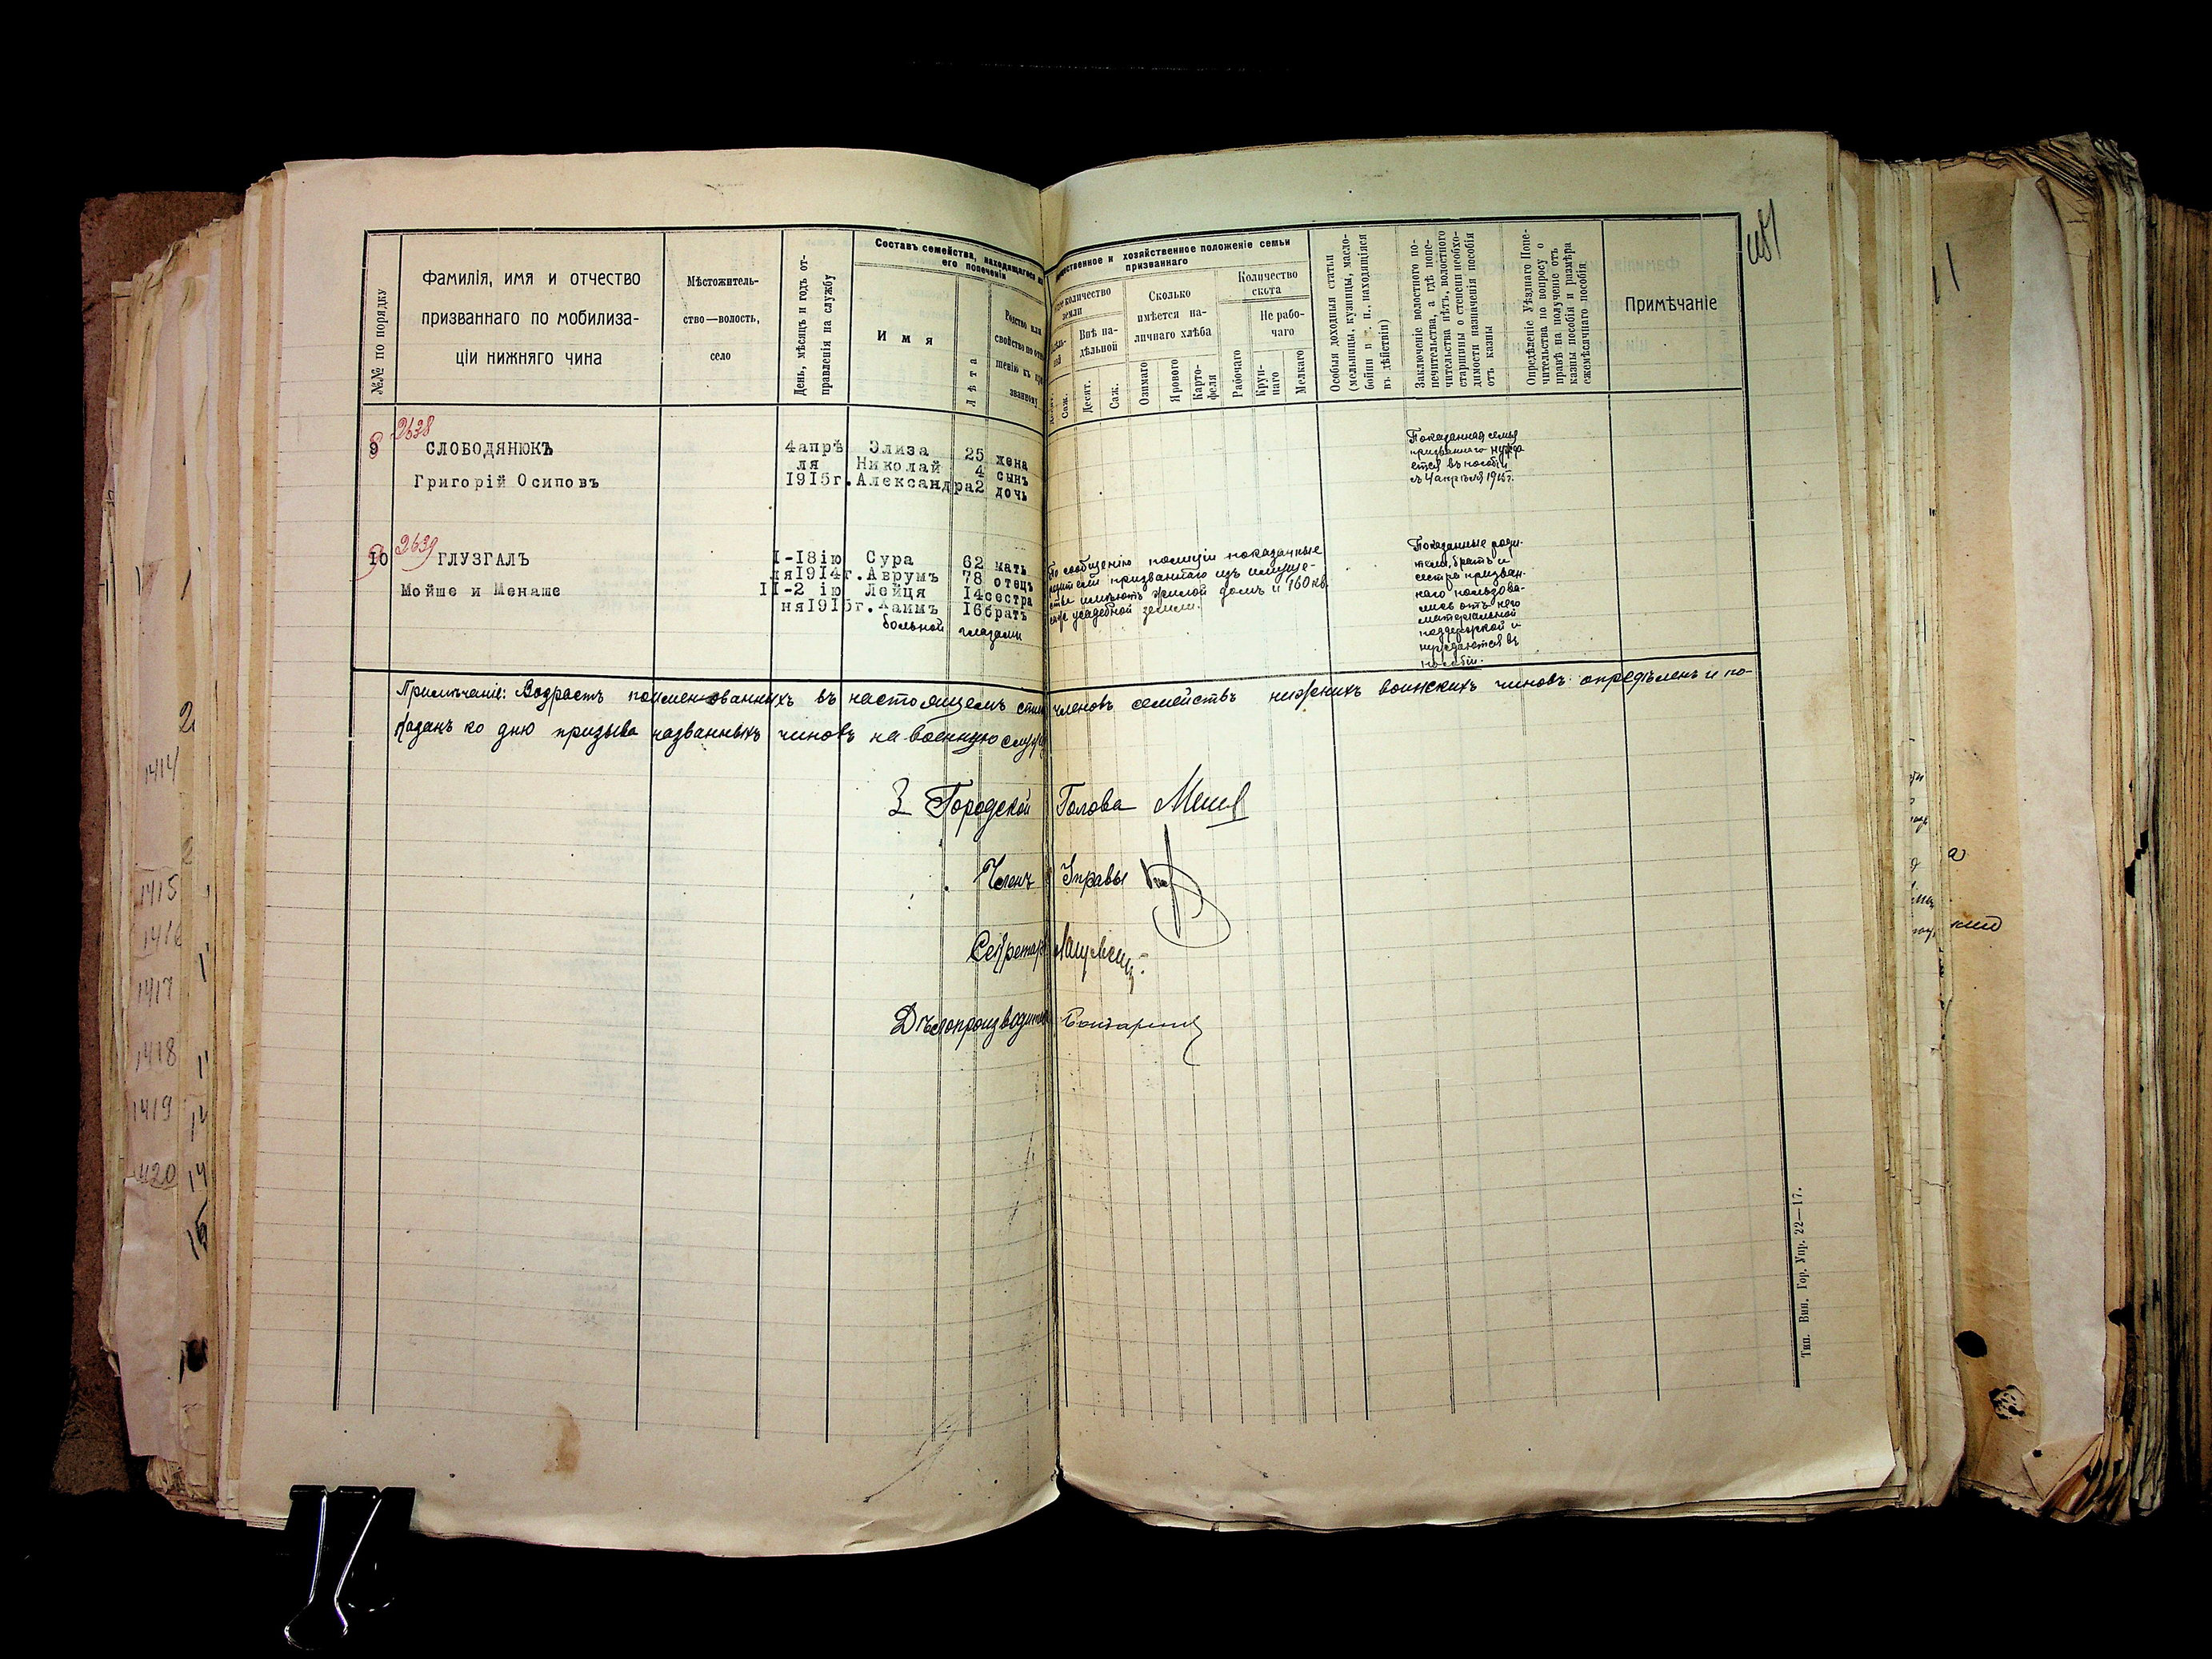 №№ по порядку
Фамилія, имя и отчество
призваннаго по мобилиза-
ціи нижняго чина
Мѣстожитель-
ство—волость,
село
День, мѣсяцъ и годъ от-
правленія на службу
Составъ семейства, находящагося на
его попеченіи
Имя
Лѣта
Родство или
свойство по отно-
шенію къ при-
званному
и хозяйственное положеніе семьи
призваннаго
количество
земли
Внѣ на-
дѣльной
Саж.
Десят.
Саж.
Сколько
имѣется на-
личнаго хлѣба
Озимаго
Ярового
Карто-
феля
Количество
скота
Рабочаго
Не рабо-
чаго
Круп-
наго
Мелкаго
Особыя доходныя статьи
(мельницы, кузницы, масло-
бойни и т. п., находящіяся
въ дѣйствіи)
Заключеніе волостного по-
печительства, а гдѣ попе-
чительства нѣтъ, волостного
старшины о степени необхо-
димости назначенія пособія
отъ казны
Опредѣленіе Уѣзднаго Попе-
чительства по вопросу о
правѣ на полученіе отъ
казны пособія и размѣра
ежемѣсячнаго пособія
Примѣчаніе
9 2638 СЛОБОДЯНЮКЪ
Григорій Осиповъ
4апрѣ Элиза 25 жена
ля Николай 4 сынъ
1915г. Александра2 дочь
Показанная семья
призваннаго нужда
ется въ пособіи
съ 4 апрѣля 1915г.
10 2639 ГЛУЗГАЛЪ
Мойше и Менаше
I-18ію Сура 62 мать
ля1914г. Аврумъ 78 отецъ
II-2 ію Лейця 14сестра
ня1915г. Хаимъ 16братъ
больной глазами
По сообщенію полиціи показанные
родители призваннаго изъ имуще-
ства имѣютъ жилой домъ и 160 кв.
саж усадебной земли.
Показанные роди-
тели, братъ и
сестра призван-
наго пользова-
лись отъ него
матеріальной
поддержкой и
нуждаются въ
пособіи.
Примѣчаніе: Возрастъ поименованныхъ въ настоящемъ спис членовъ семействъ нижнихъ воинскихъ чиновъ опредѣленъ и по-
казанъ ко дню призыва названныхъ чиновъ на военную службу
З Городской Голова
Членъ Управы
Секретарь
Дѣлопроизводитель
Тип. Вин. Гор. Упр. 22—17.
1414
1415
1416
1417
1418
1419
1420